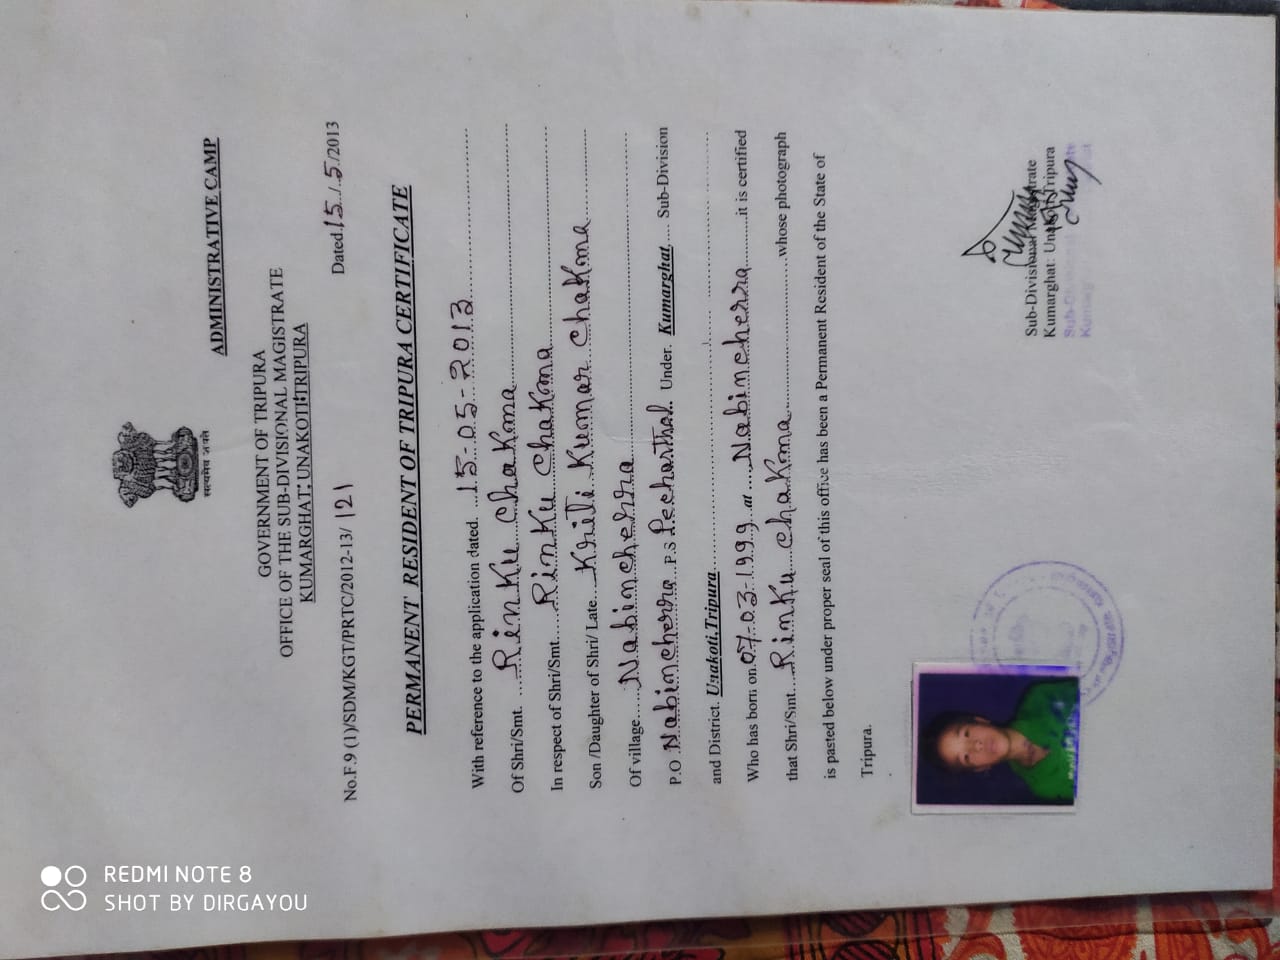 सत्यमेव जयते
ADMINISTRATIVE CAMP
GOVERNMENT OF TRIPURA
OFFICE OF THE SUB-DIVISIONAL MAGISTRATE
KUMARGHAT: UNAKOTI TRIPURA
No.F.9 (1)/SDM/KGT/PRTC/2012-13/ 121 Dated 15/5/2013
PERMANENT RESIDENT OF TRIPURA CERTIFICATE
With reference to the application dated. 15-05-2013
Of Shri/Smt. Rinku Chakma
In respect of Shri/Smt. Rinku Chakma
Son /Daughter of Shri/ Late. Kriti Kumar Chakma
Of village. Nabincherra
P.O Nabincherra P.S Pecharthal Under. Kumarghat Sub-Division
and District. Unakoti,Tripura
Who has born on 07-03-1999 at Nabincherra it is certified
that Shri/Smt. Rinku Chakma whose photograph
is pasted below under proper seal of this office has been a Permanent Resident of the State of
Tripura.
Sub-Divisional Magistrate
Kumarghat: Unakoti Tripura
REDMI NOTE 8
SHOT BY DIRGAYOU